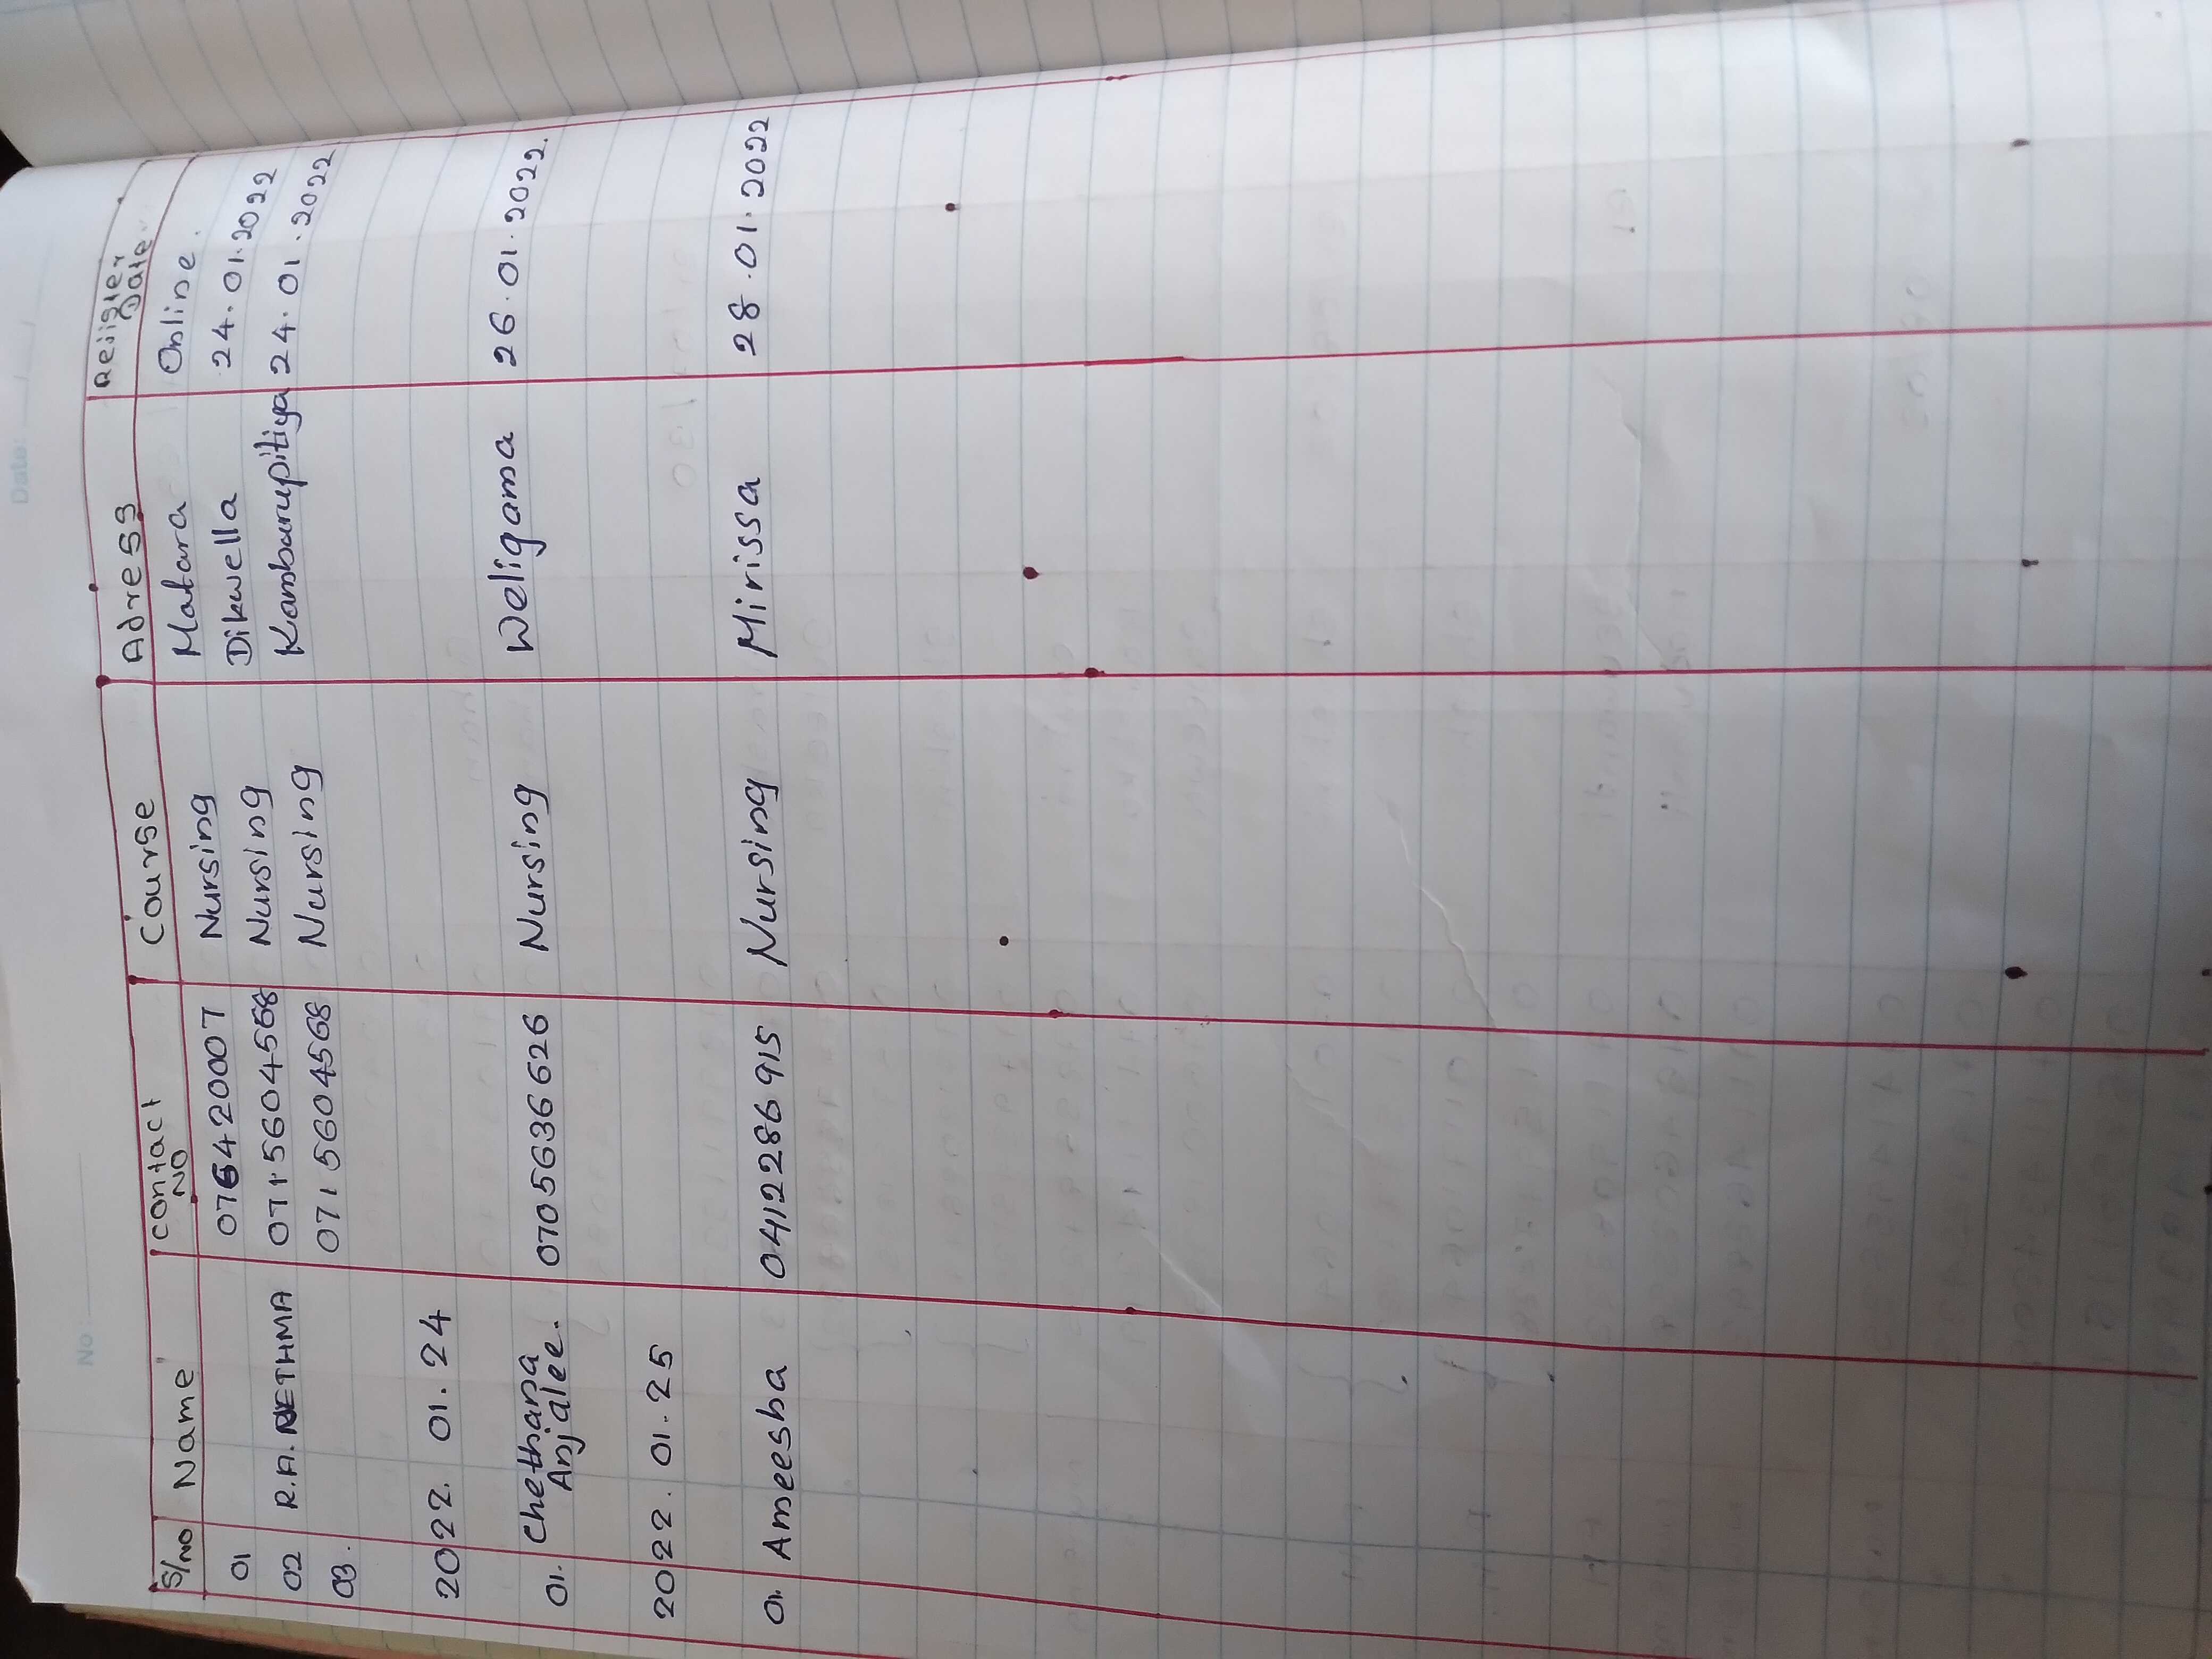 No: Date:
S/no Name contact NO Course Adress Reijster Date.
01 076420007 Nursing Matara Online.
02 R.A. NETHMA 0715604568 Nursing Dikwella 24.01.2022
03. 0715604568 Nursing Kamburupitiya 24.01.2022
2022.01.24
01. Chethana Anjalee. 0705636626 Nursing Weligama 26.01.2022.
2022.01.25
01. Ameesha 0412286915 Nursing Mirissa 28.01.2022